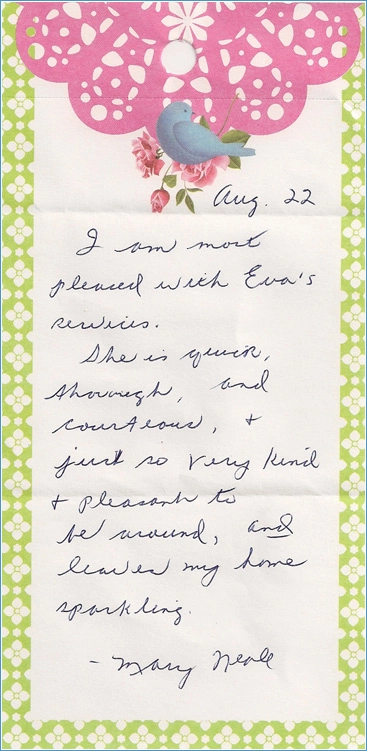 Aug. 22
I am most
pleased with Eva's
services.
She is quick,
thorough, and
courteous, +
just so very kind
+ pleasant to
be around, and
leaves my home
sparkling.
- Mary Neale